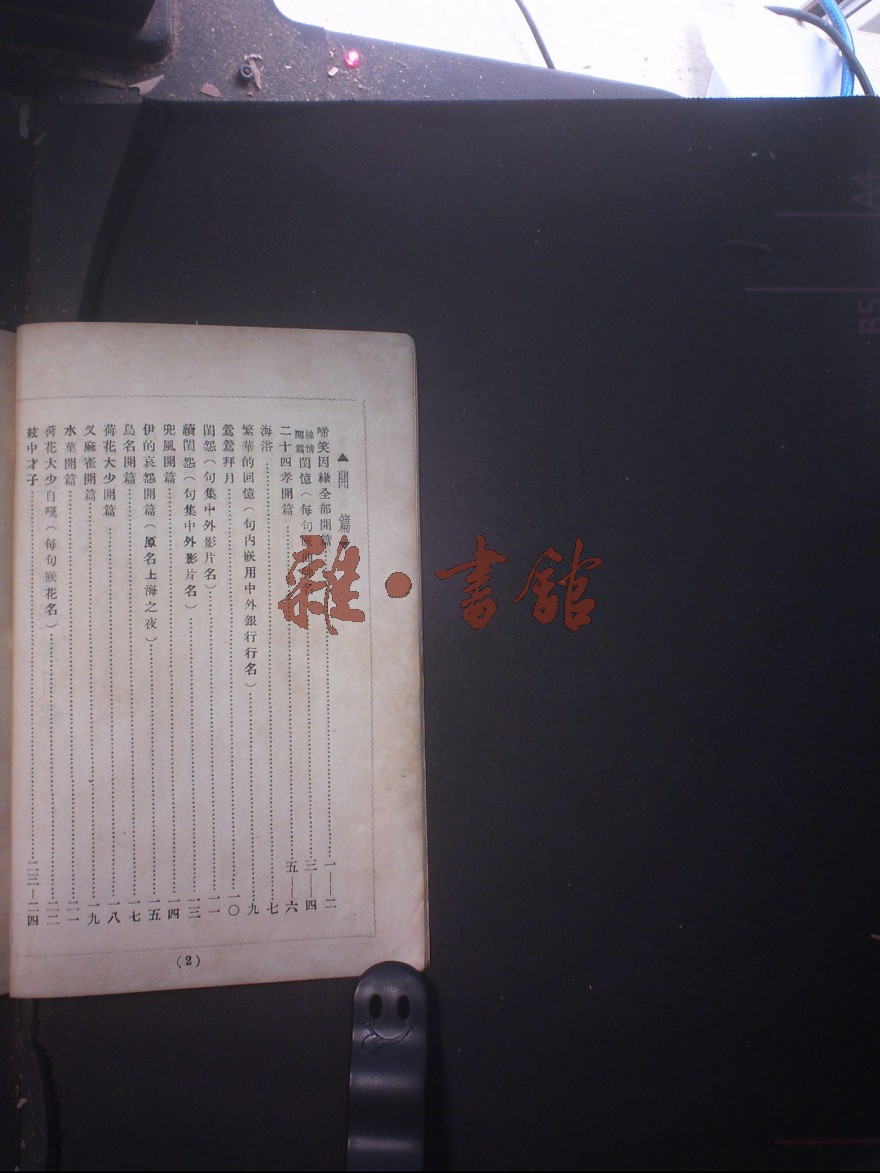 ▲開篇
啼笑因緣全部開篇……一——二
綺情開篇閨憶(每句……三——四
二十四孝開篇……五——六
海浴……七
繁華的回憶(句內嵌用中外銀行行名)……九
鴛鴦拜月……一〇
閨怨(句集中外影片名)……一一
續閨怨(句集中外影片名)……一三
兜風開篇……一四
伊的哀怨開篇(原名上海之夜)……一五
鳥名開篇……一七
荷花大少開篇……一八
叉麻雀開篇……一九
水菓開篇……二一
荷花大少自嘆(每句嵌花名)……二二
絃中才子……二三—二四
(2)
雜·書館
A4
B5